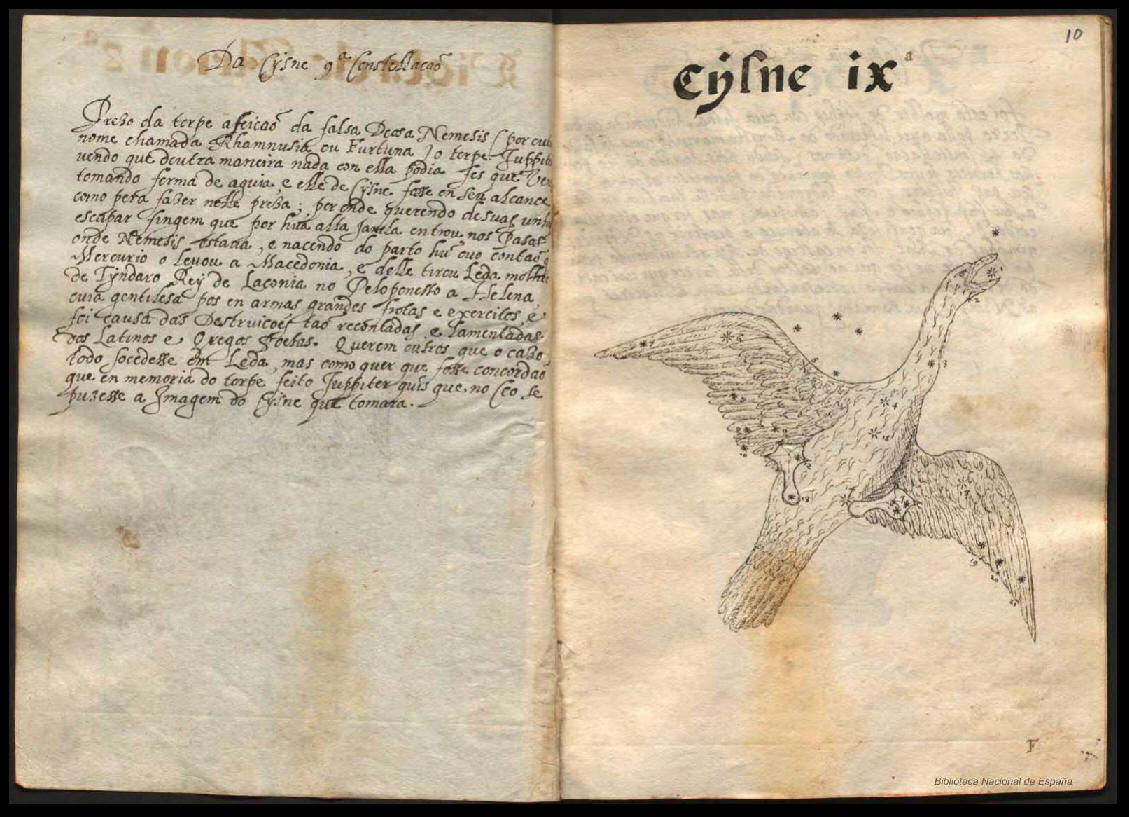 Da Cysne 9ª Constellação
Preso da torpe afeicaõ da falsa Deosa Nemesis (por outro
nome chamada Rhamnusia ou Furtuna) o torpe Juppiter
vendo que doutra maneira nada con ella podia fes que Venus
tomando forma de aguia, e elle de Cysne fosse en seu alcance
como pera fazer nelle presa; por onde querendo de suas unhas
escapar fingem que por huã alta janela entrou nos Pasas
onde Nemesis estaua, e nacendo do parto hu' ouo contaõ q
Mercurio o leuou a Macedonia, e delle tirou Leda molher
de Tyndaro Rey de Laconia no Peloponesso a Helena,
cuia gentilesa pos en armas grandes frotas e exercitos, e
foi causa das Destruicoẽs taõ recontadas, e lamentadas
dos Latinos e Gregos Poetas. Querem outros que o caso
todo socedesse em Leda, mas como quer que fosse concordaõ
que en memoria do torpe feito Juppiter quis que no Ceo se
puzesse a Imagem do Cysne que tomara.
10
Cysne ixª
F
Biblioteca Nacional de España